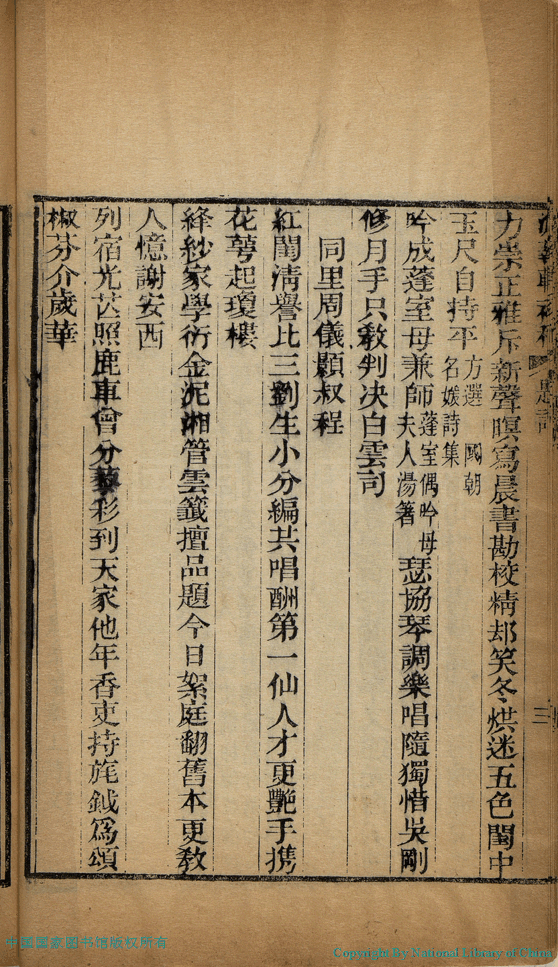 力崇正雅斥新聲暝寫晨書勘校精却笑冬烘迷五色閨中
玉尺自持平方選國朝名媛詩集
吟成蓬室母兼師蓬室偶吟母夫人湯著瑟協琴調樂唱隨獨惜吳剛
修月手只教判決白雲司
同里周儀顥叔程
紅閨淸譽比三劉生小分編共唱酬第一仙人才更艷手携
花萼起瓊樓
絳紗家學衍金泥湘管雲籤擅品題今日絮庭翻舊本更教
人憶謝安西
列宿光芒照鹿車曾分彩到天家他年香吏持旄鉞爲頌
椒芬介歲華
三
中国国家图书馆版权所有
Copyright By National Library of China